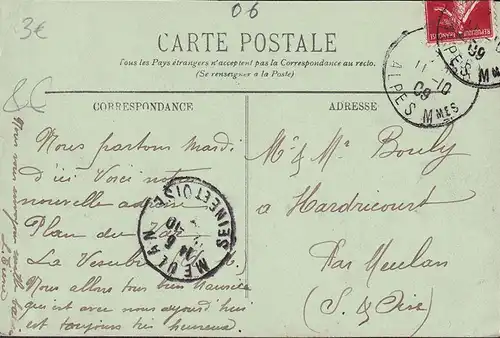 3€
06
CARTE POSTALE
Tous les Pays étrangers n'acceptent pas la Correspondance au recto.
(Se renseigner à la Poste)
CORRESPONDANCE
ADRESSE
REPUBLIQUE FRANÇAISE
ALPES Mmes
11 -10
09
ALPES Mmes
09
Nous partons mardi
d'ici Voici notre
nouvelle
Plan du Var
La Vesubie
Nous allons tous bien Maurice
qui est avec nous aujourd'hui
est toujours très heureux.
MEULAN
SEINE ET OISE
Mr & Me Bouly
a Hardricourt
Par Meulan
(S. & Oise)